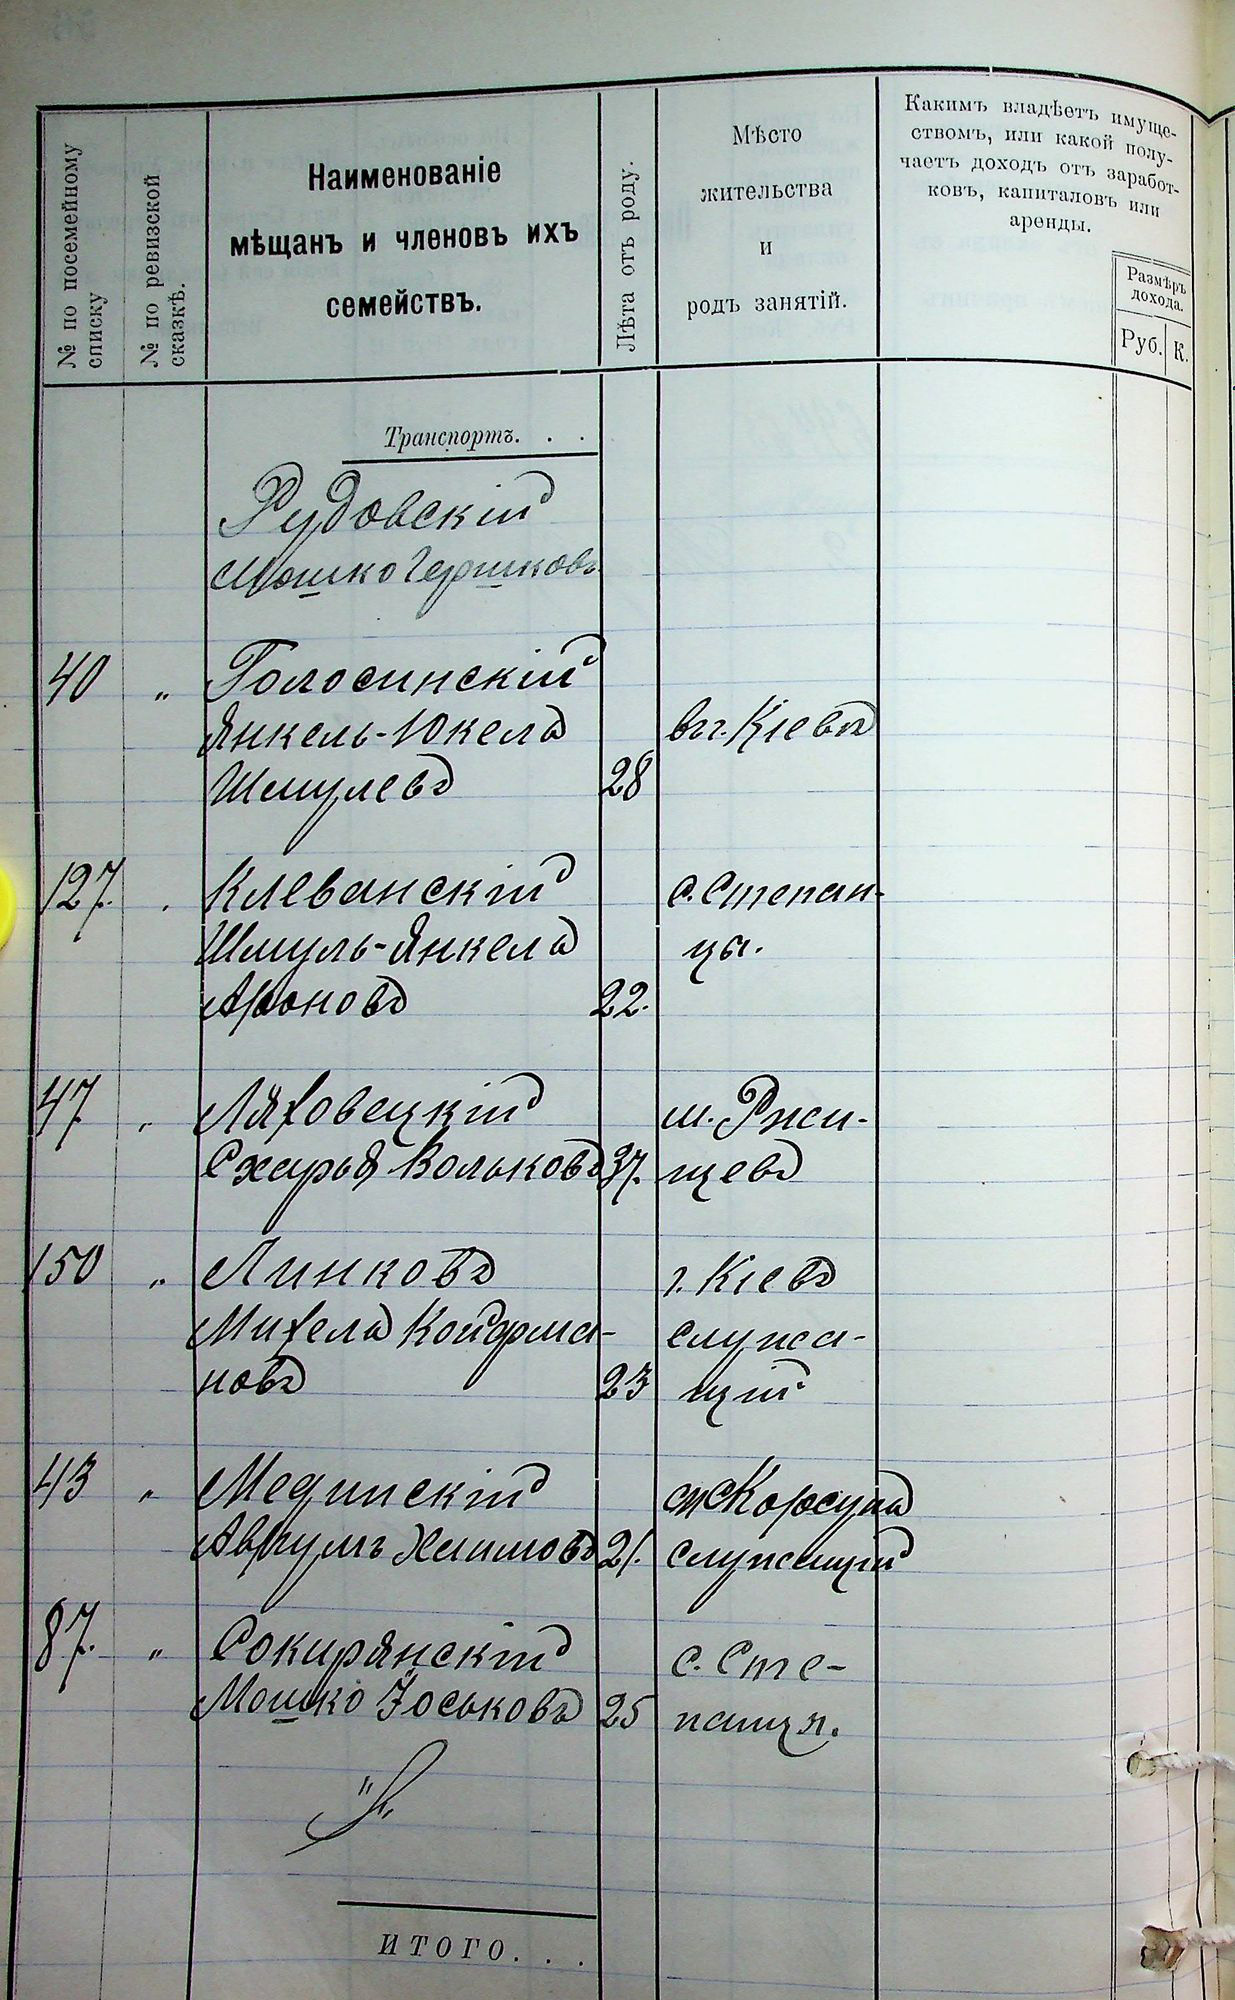 № по посемейному
списку
№ по ревизской
сказкѣ.
Наименованіе
мѣщанъ и членовъ ихъ
семействъ.
Лѣта отъ роду.
Мѣсто
жительства
и
родъ занятій.
Какимъ владѣетъ имуще-
ствомъ, или какой полу-
чаетъ доходъ отъ заработ-
ковъ, капиталовъ или
аренды.
Размѣръ
дохода.
Руб. К.
Транспортъ. . .
Рудовскій
Мошко Гершковъ
40 „ Голосинскій
Янкель-Юкель въ г. Кіевѣ
Шмулевъ 28
127. . Клеванскій с. Степан-
Шмуль-Янкель цы.
Ароновъ 22.
47 „ Ляховецкій м. Ржи-
Схарья Вольковъ 37. щевъ
150 „ Линковъ г. Кіевъ
Михель Койфма- служа-
новъ 23 щій
43 „ Мединскій Корсунь
Аврумъ Хаимовъ 21. служащій
87. „ Сокирянскій с. Сте-
Мошко Іоськовъ 25 панцы.
ИТОГО. . .